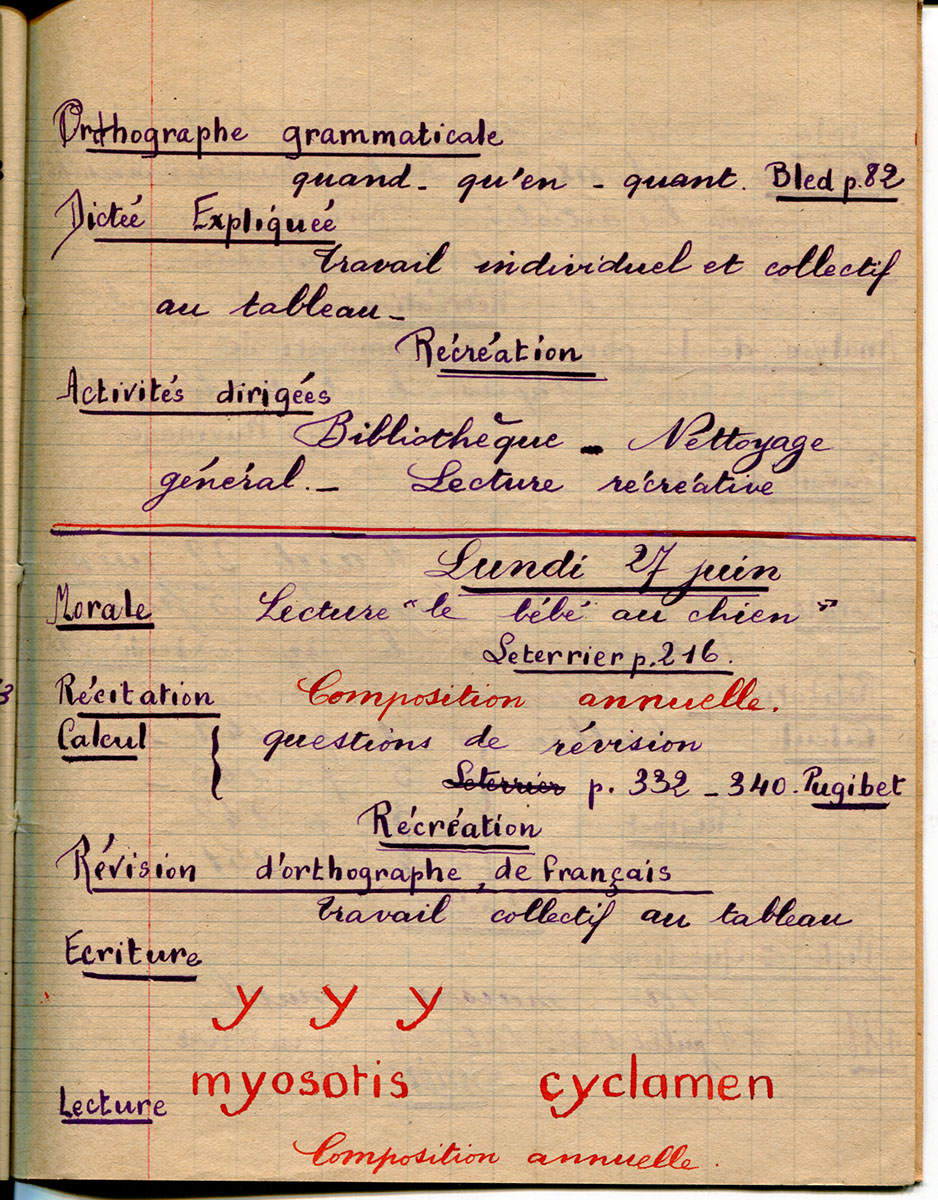 Orthographe grammaticale
quand - qu'en - quant. Bled p.82
Dictée Expliquée
Travail individuel et collectif
au tableau -
Récréation
Activités dirigées
Bibliothèque - Nettoyage
général. - Lecture récréative
Lundi 27 juin
Morale Lecture "le bébé au chien"
Leterrier p.216.
Récitation Composition annuelle.
Calcul { questions de révision
Leterrier p. 332 - 340. Pugibet
Récréation
Révision d'orthographe, de français
Travail collectif au tableau
Ecriture
y y y
myosotis cyclamen
Lecture
Composition annuelle.